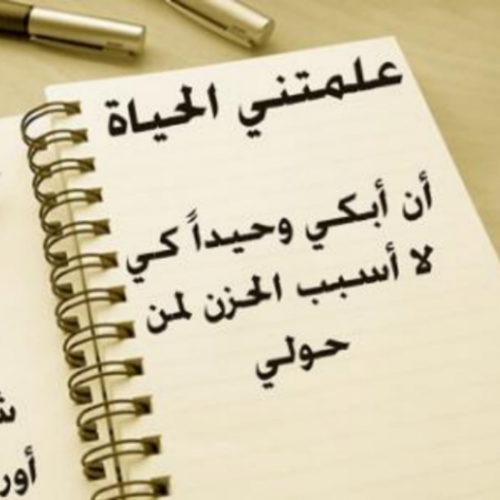 علمتني الحياة
أن أبكي وحيداً كي
لا أسبب الحزن لمن
حولي